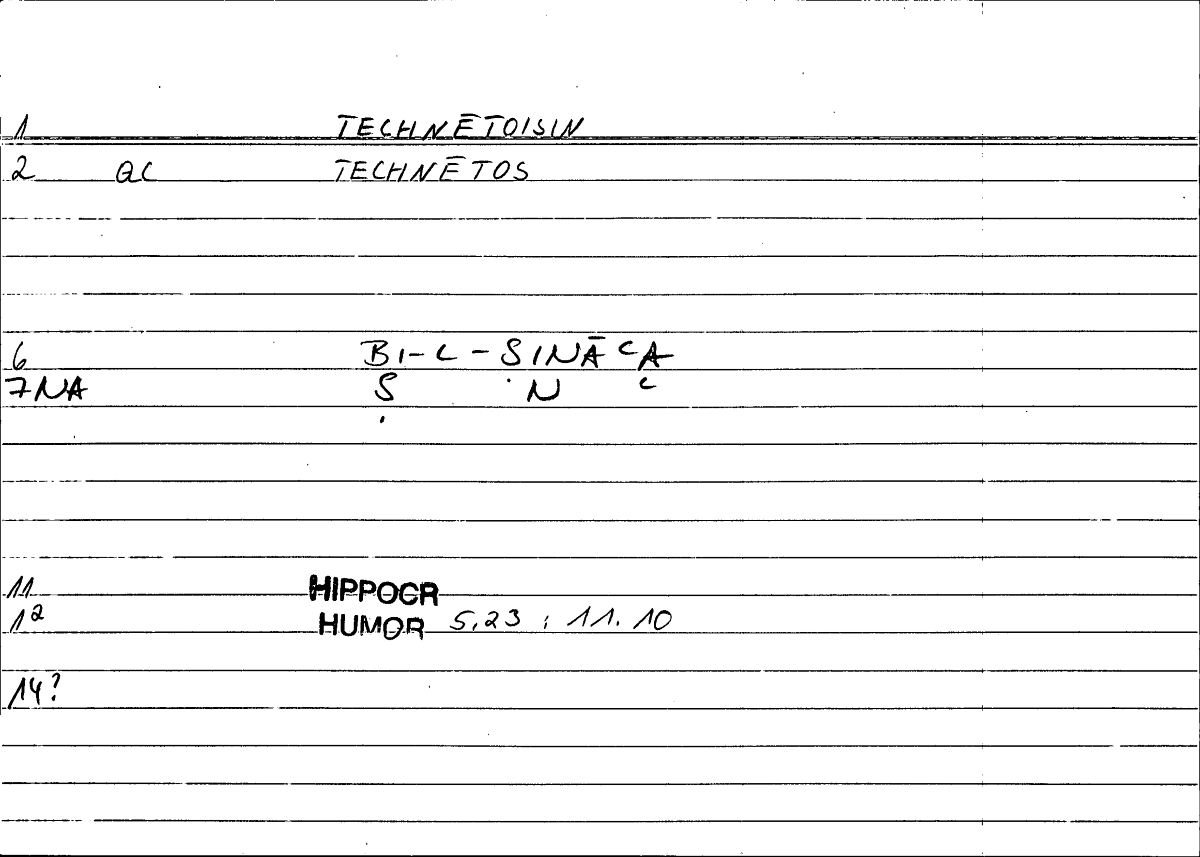 1 TECHNĒTOISIN
2 QC TECHNĒTOS
6 BI-L-SINĀʿA
7NA Ṣ N ʿ
11 HIPPOCR
12 HUMOR 5,23 ; 11.10
14?